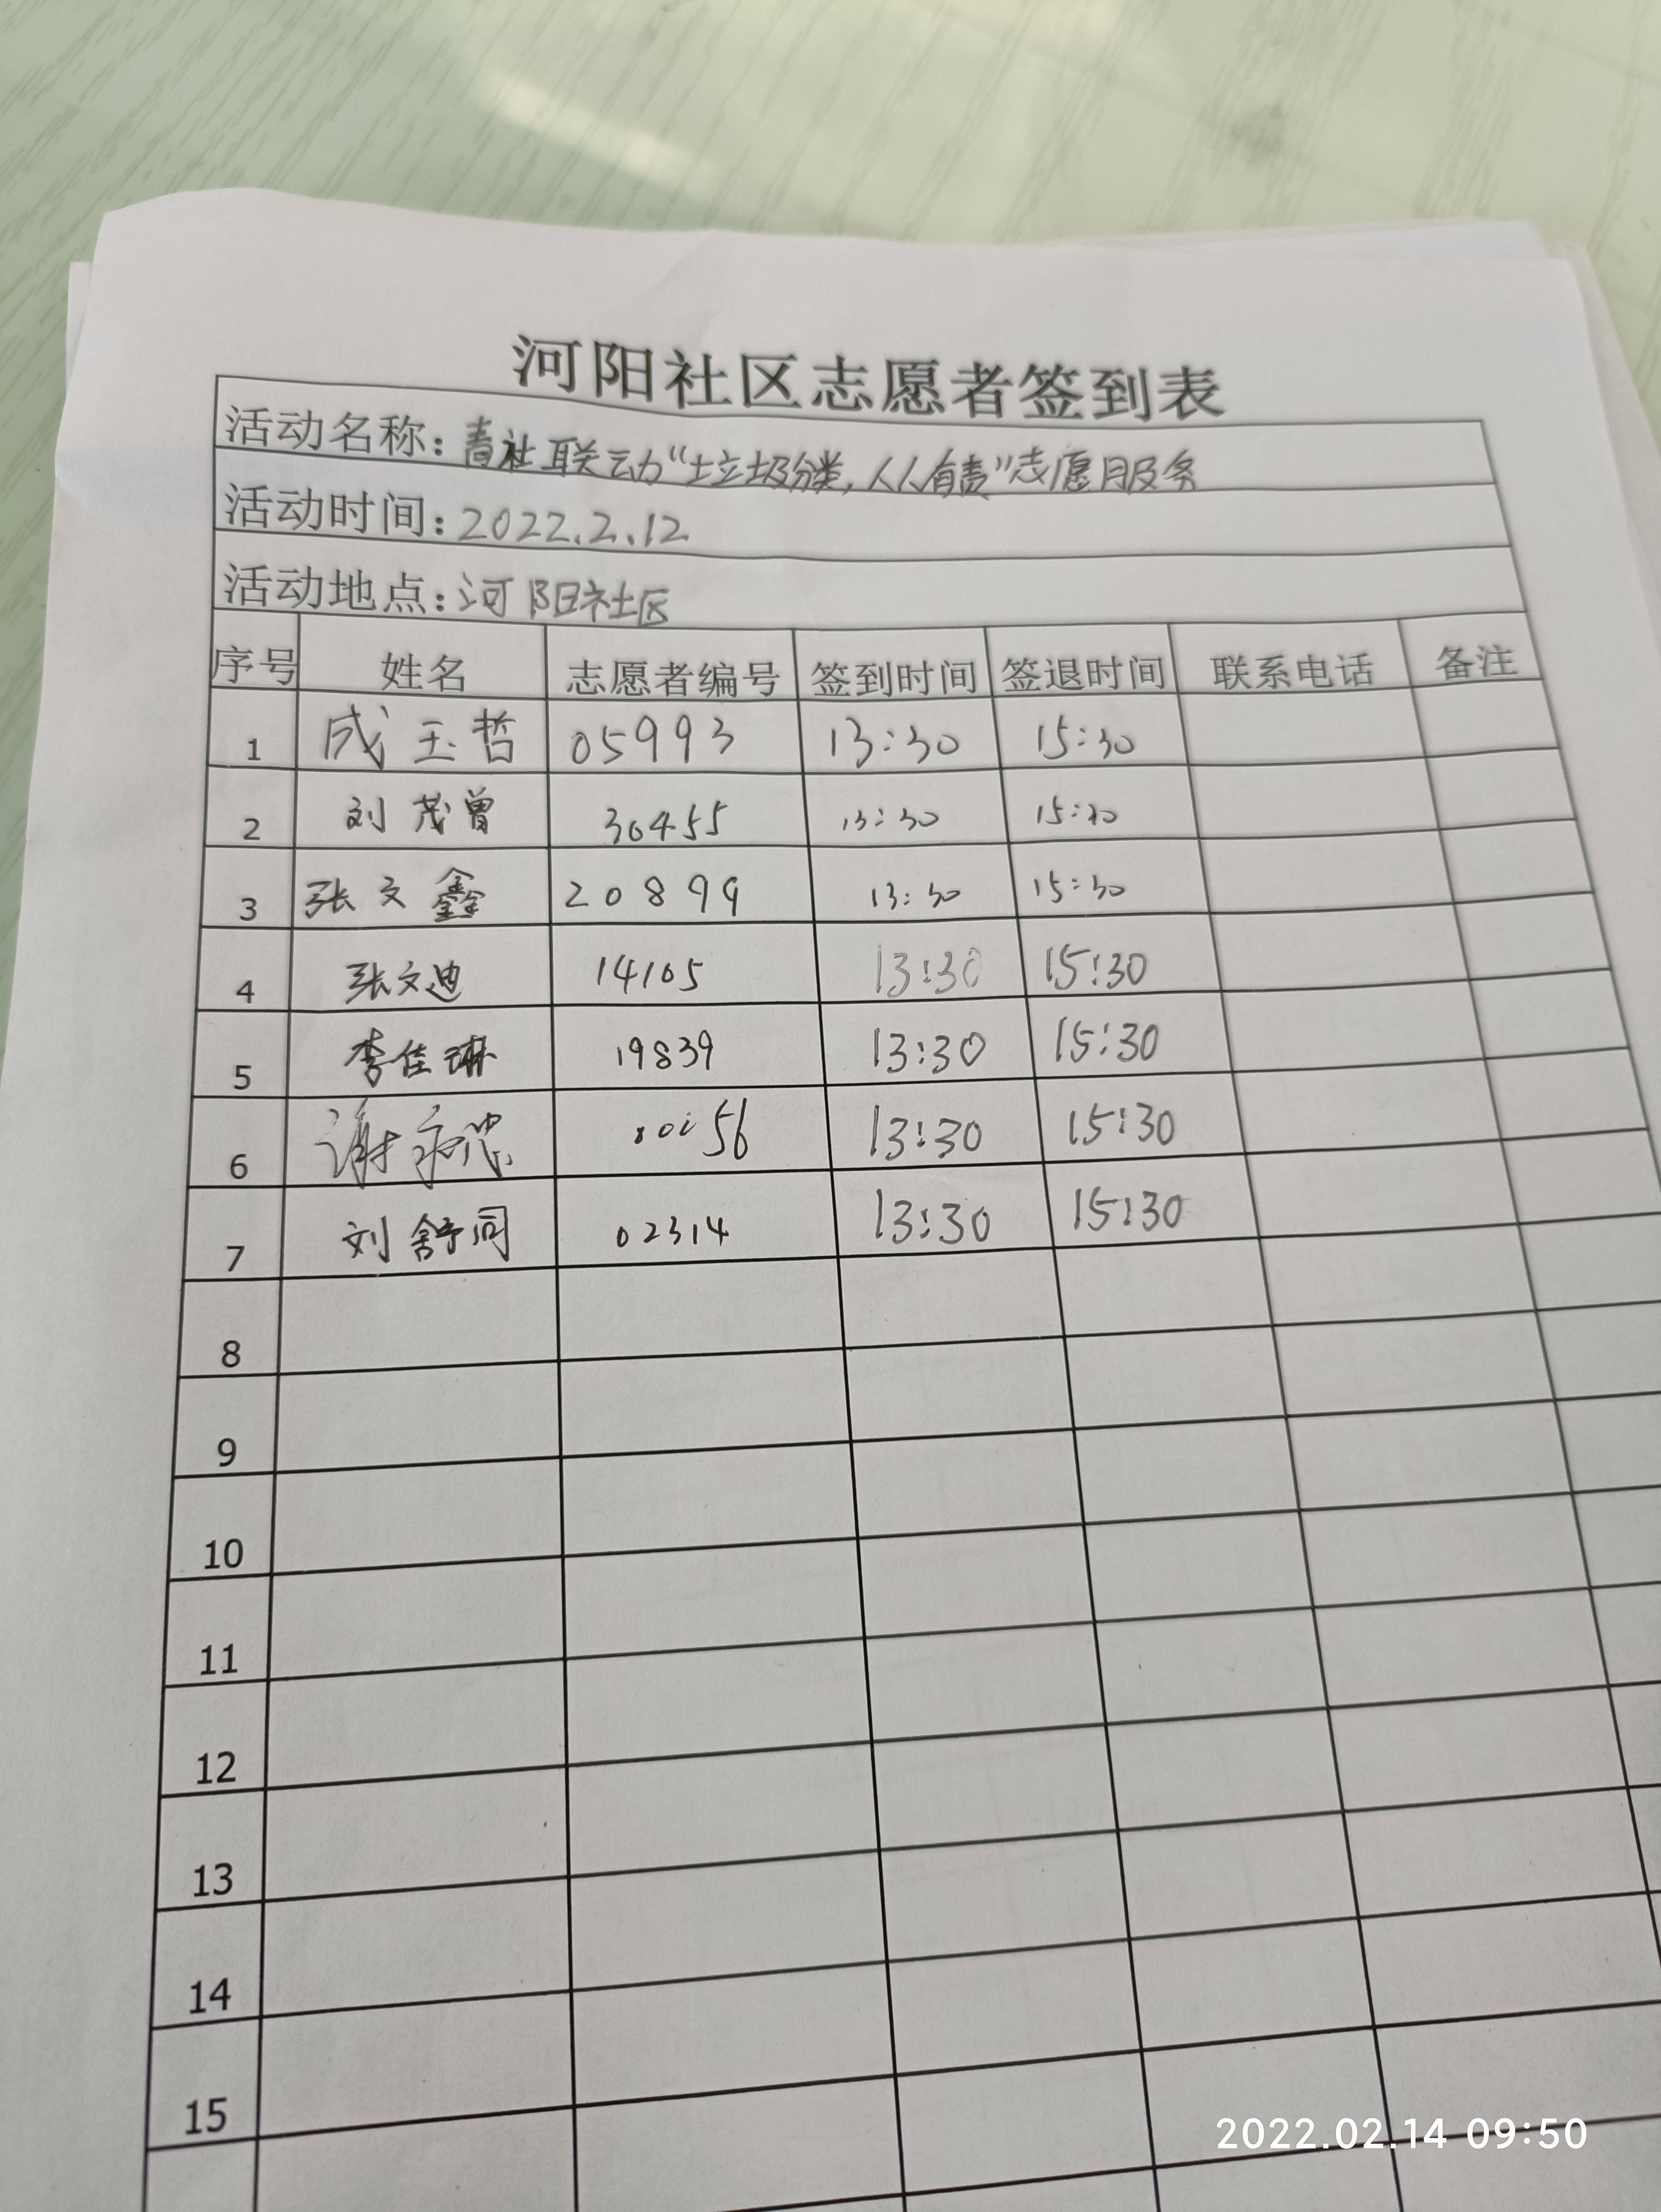 河阳社区志愿者签到表
活动名称：青社联动“垃圾分类，人人有责”志愿服务
活动时间：2022.2.12
活动地点：河阳社区
序号 姓名 志愿者编号 签到时间 签退时间 联系电话 备注
1 成玉哲 05993 13:30 15:30
2 刘茂曾 30455 13:30 15:30
3 张文鑫 20899 13:30 15:30
4 张文迪 14105 13:30 15:30
5 李佳琳 19839 13:30 15:30
6 谢 13:30 15:30
7 刘舒同 02314 13:30 15:30
8
9
10
11
12
13
14
15
2022.02.14 09:50